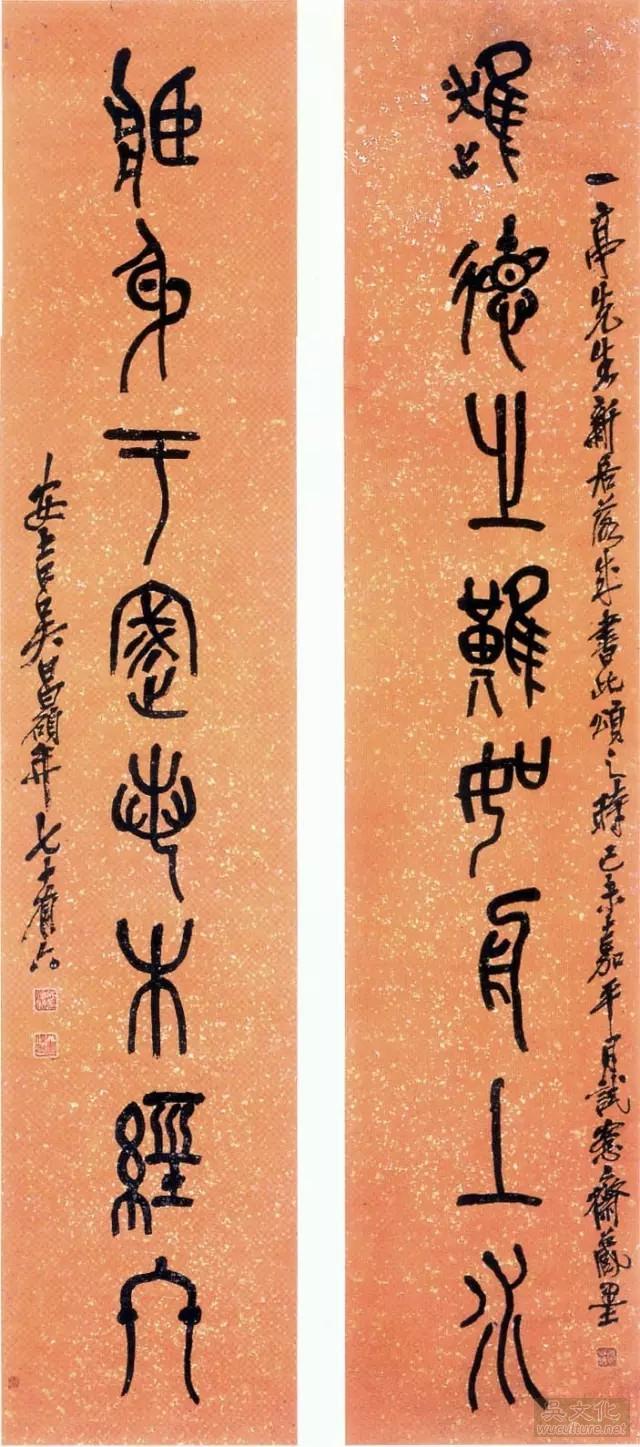 一亭先生新居落成書此頌之時己未嘉平月試愙齋藏墨
德之難如舟上水
身于木經
安吉吳昌碩年七十有六
吳文化
wuculture.net